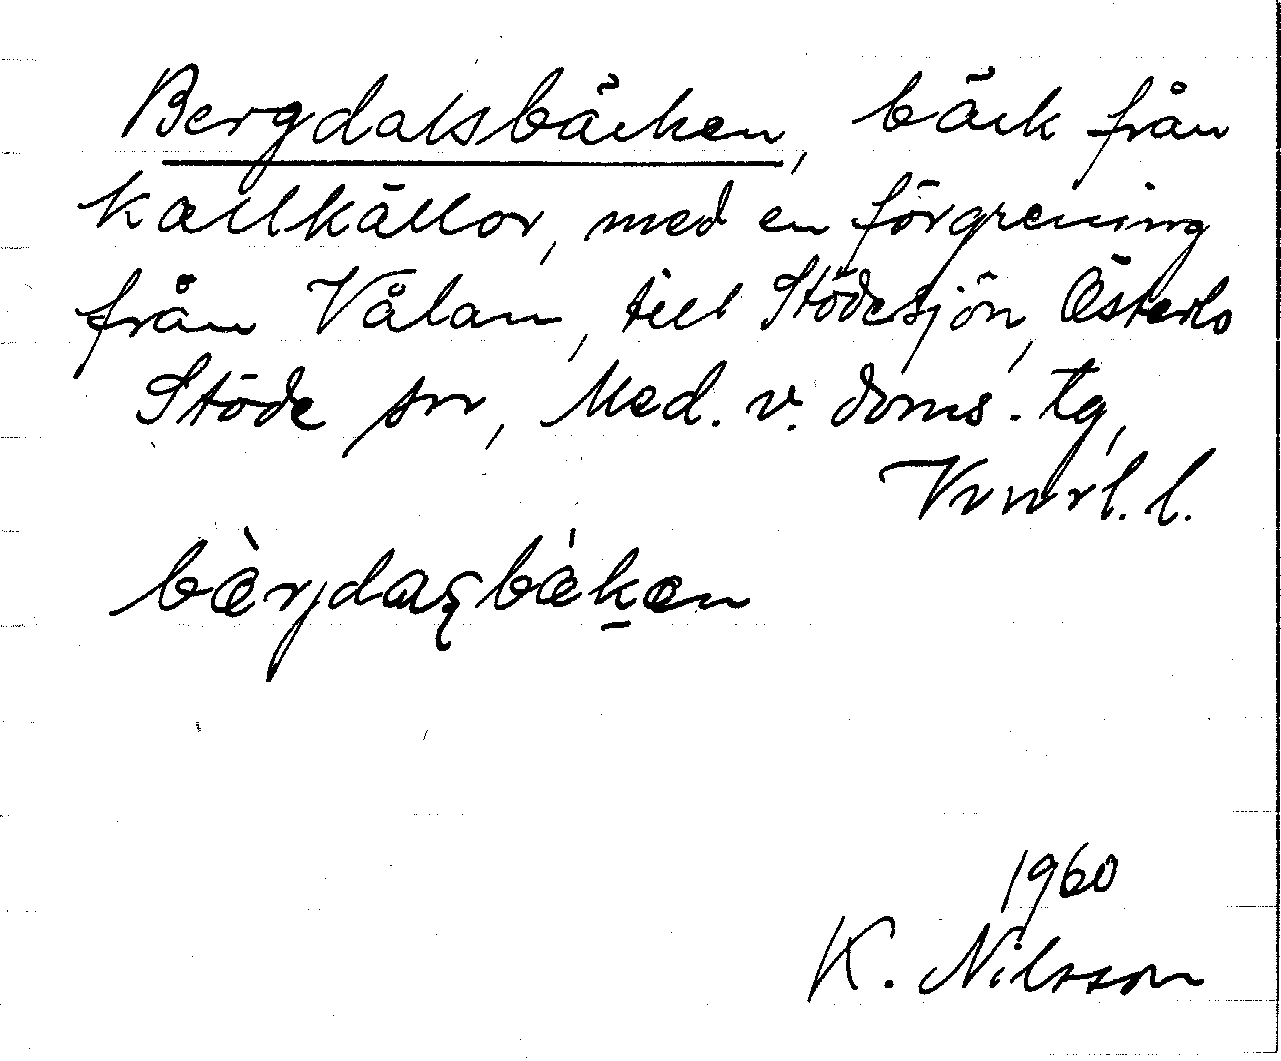 Bergdalsbäcken, bäck från
kallkällor, med en förgrening
från Vålan, till Stödesjön, Österlo
Stöde sn, Med. v. doms. tg,
Vnorl. l.
1960
K. Nilsson